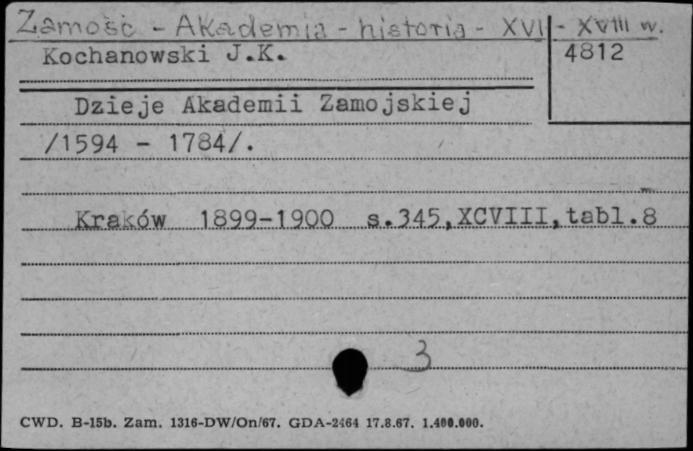 Zamość - Akademia - historia - XVI - XVIII w.
Kochanowski J.K. 4812
Dzieje Akademii Zamojskiej
/1594 - 1784/.
Kraków 1899-1900 s.345,XCVIII,tabl.8
3
CWD. B-15b. Zam. 1316-DW/On/67. GDA-2464 17.8.67. 1.400.000.